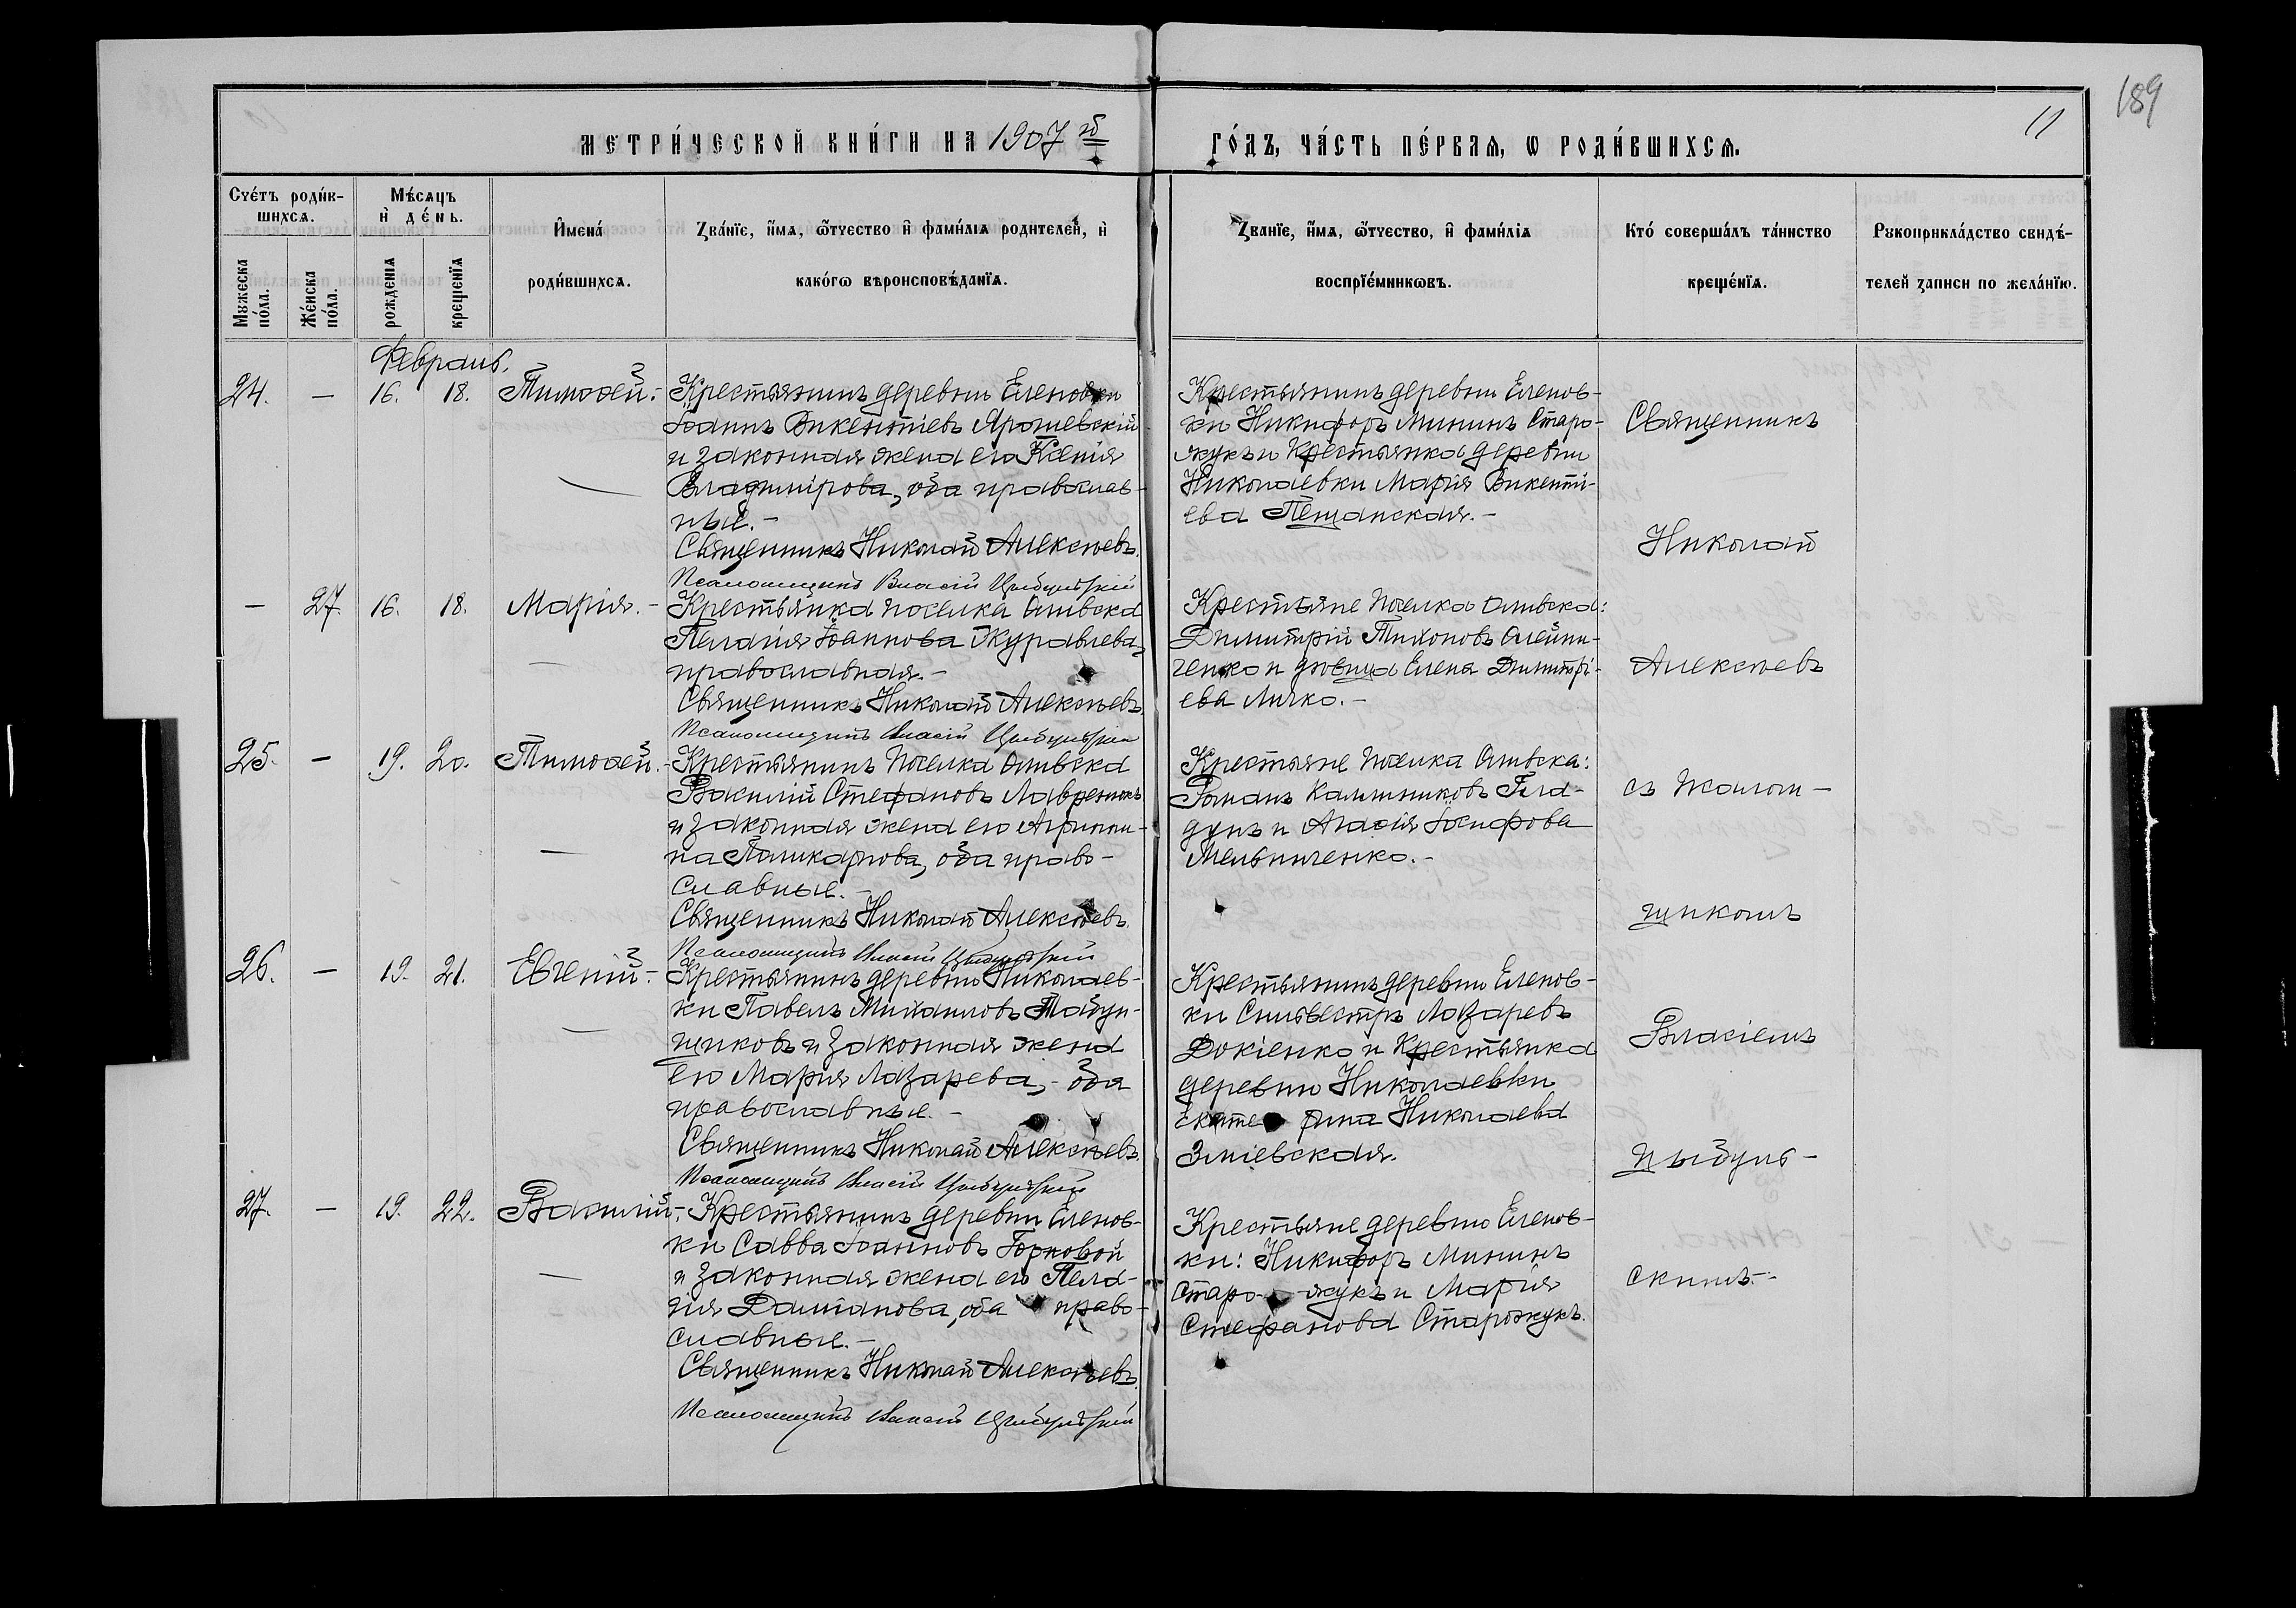 189
11
МЕТРИ́ЧЕСКОЙ КНИ́ГИ НА 1907 й
ГО́ДЪ, ЧА́СТЬ ПЕ́РВАѦ, Ѡ РОДИ́ВШИХСѦ.
Сче́тъ роди́в-
шихсѧ.
Мѣ́сѧцъ
и де́нь.
Имена́
роди́вшихсѧ.
Зва́нїе, и́мѧ, ѻ́тчество и фами́лїѧ родителей, и
како́гѡ вѣроисповѣ́данїѧ.
Зва́нїе, и́мѧ, ѻ́тчество, и фами́лїѧ
воспрїе́мникѡвъ.
Кто́ соверша́лъ та́инство
креще́нїѧ.
Рꙋкоприкла́дство свидѣ́-
телей записи по жела́нїю.
Мꙋжеска
по́ла.
Же́нска
по́ла.
рожденїѧ
крещенїѧ
Февраль.
24. — 16. 18. Тимофей.-
Крестьянинъ деревни Еленовки
Іоаннъ Викентіевъ Ярошевскій
и законная жена его Ксенія
Владимірова, оба православ-
ные.-
Священникъ Николай Алексѣевъ.
Псаломщикъ Власій Цыбульскій
Крестьянинъ деревни Еленов-
ки Никифоръ Мининъ Старо-
жукъ и Крестьянка деревни
Николаевки Марія Викенті-
ева Пещанская.-
— 27. 16. 18. Марія.-
Крестьянка поселка Ольвска
Пелагія Іоаннова Журавлева,
православная.-
Священникъ Николай Алексѣевъ.
Псаломщикъ Власій Цыбульскій
Крестьяне поселка Ольвска:
Димитрій Тихоновъ Олейни-
ченко и дѣвица Елена Димитрі-
ева Лячко.-
25. — 19. 20. Тимофей.-
Крестьянинъ поселка Ольвска
Василій Стефановъ Лавренюкъ
и законная жена его Агриппи-
на Поликарпова, оба право-
славные.-
Священникъ Николай Алексѣевъ.
Псаломщикъ Власій Цыбульскій
Крестьяне поселка Ольвска:
Романъ Калинниковъ Гла-
дунъ и Агафія Іосифова
Мельниченко.-
26. — 19. 21. Евгеній.-
Крестьянинъ деревни Николаев-
ки Павелъ Михаиловъ Табун-
щиковъ и законная жена
его Марія Лазарева, - оба
православные.-
Священникъ Николай Алексѣевъ.
Псаломщикъ Власій Цыбульскій
Крестьянинъ деревни Еленов-
ки Сильвестръ Лазаревъ
Докіенко и Крестьянка
деревни Николаевки
Екате рина Николаева
Зміевская.
27. — 19. 22. Василій.-
Крестьянинъ деревни Еленов-
ки Савва Іоанновъ Горковой
и законная жена его Пела-
гія Даміанова, оба право-
славные.-
Священникъ Николай Алексѣевъ.
Псаломщикъ Власій Цыбульскій
Крестьяне деревни Еленов-
ки: Никифоръ Мининъ
Старо- жукъ и Марія
Стефанова Старожукъ.
Священникъ
Николай
Алексѣевъ
съ псалом-
щикомъ
Власіемъ
Цыбуль-
скимъ.-